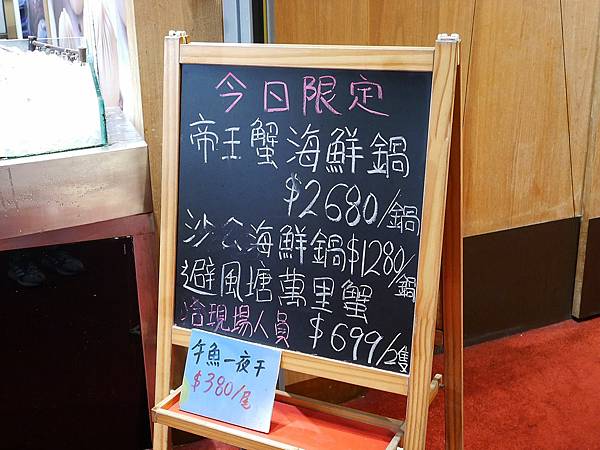 今日限定
帝王蟹海鮮鍋
$2680/鍋
沙公海鮮鍋$1280/鍋
避風塘萬里蟹
洽現場人員 $699/2隻
午魚一夜干
$380/尾